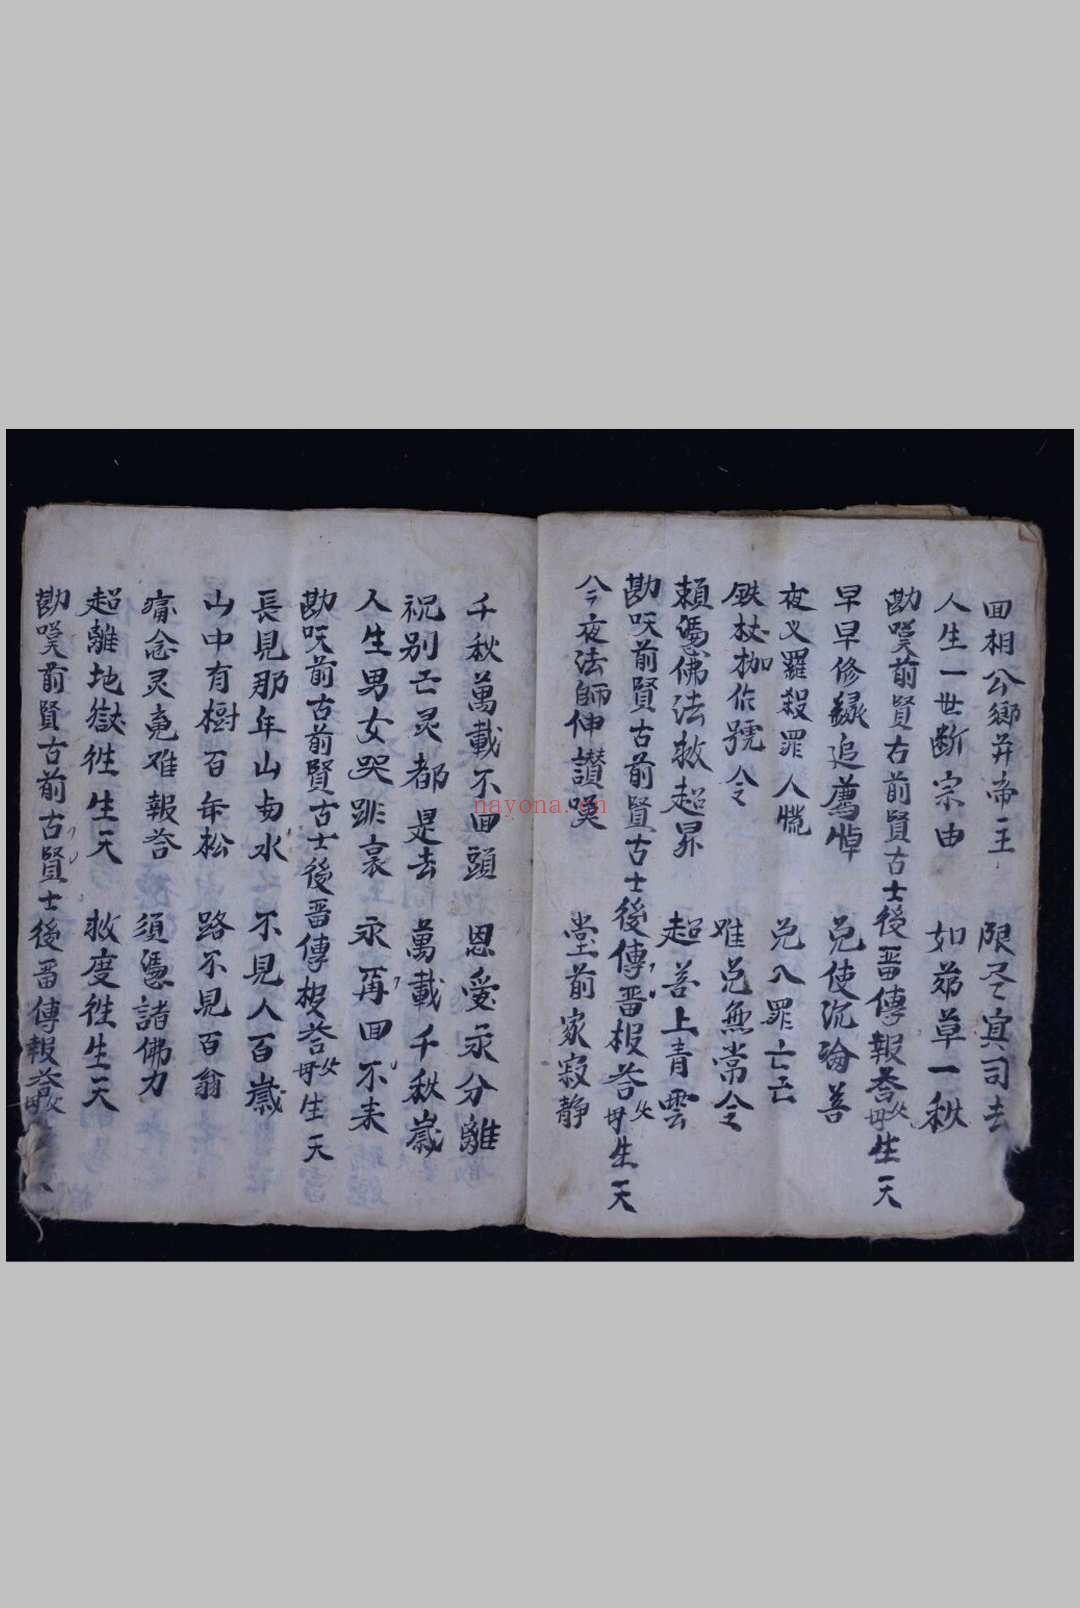 回相公鄉并帝主 限尽寅司去
人生一世断宗由 如茆草一秋
勘嘆前賢古前賢古士後畨傳報荅父母生天
早早修齋追薦悼 免使沉淪苦
夜义羅殺罪人慌 免入罪亡亡
鉄杖枷作號令 难免無常令
頼憑佛法救超昇 超善上青雲
勘嘆前賢古前賢古士後傳畨报荅父母生天
今夜法師伸讃嘆 堂前家寂静
千秋萬載不回頭 恩愛永分離
祝别亡灵都是去 萬載千秋歲
人生男女哭啼哀 永再回不来
勘嘆前古前賢古士後畨傳报荅父母生天
長見那年山甸水 不見人百歲
山中有樹百年松 路不見百翁
痛念灵竟难報荅 須憑諸佛力
超離地獄徃生天 救度徃生天
勘嘆前賢古前古賢士後畨傳報荅父母
nayona.cn